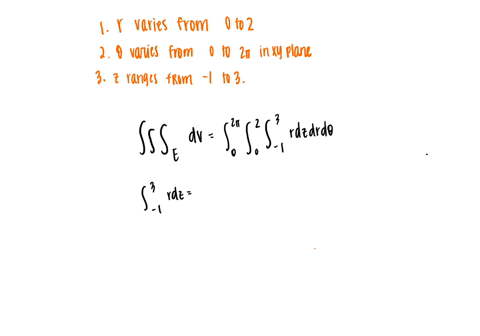 1. r varies from 0 to 2
2. θ varies from 0 to 2π in xy plane
3. z ranges from -1 to 3.
∭_E dv = ∫_0^{2π} ∫_0^2 ∫_{-1}^3 rdzdrdθ
∫_{-1}^3 rdz =